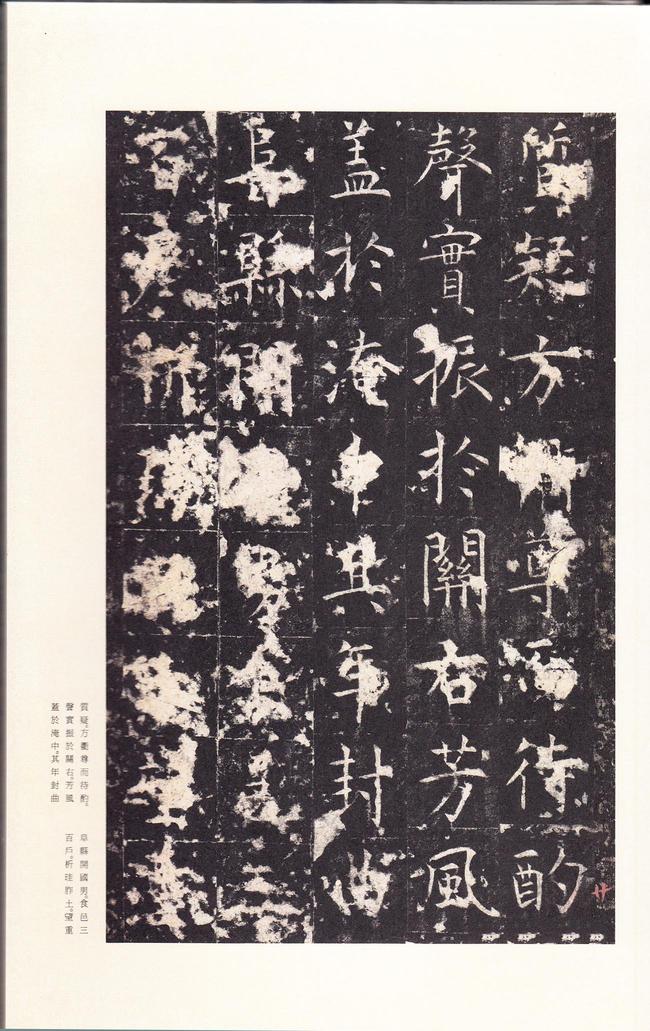 質疑方衢尊而待酌
聲實振於關右芳風
蓋於淹中其年封曲
阜縣開國男食邑三
百戶析珪胙土望重
質疑。方衢尊而待酌。
聲實振於關右。芳風
蓋於淹中。其年封曲
阜縣開國男。食邑三
百戶。析珪胙土。望重